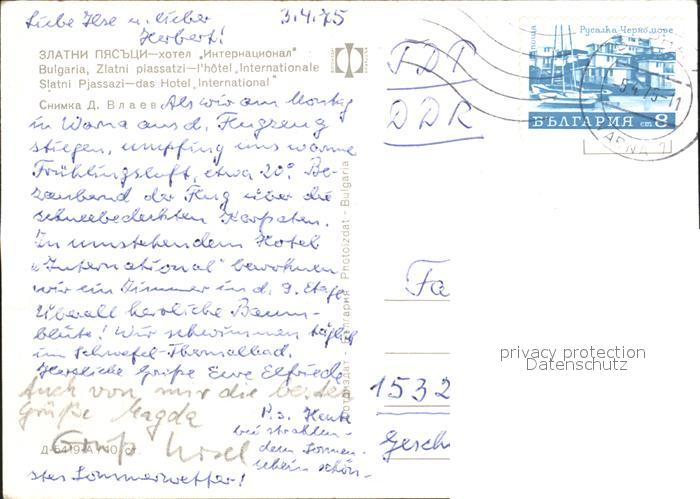 Liebe Ilse u. lieber
Herbert!
3.4.75
ЗЛАТНИ ПЯСЪЦИ—хотел „Интернационал"
Bulgaria, Zlatni piassatzi—l'hôtel „Internationale
Slatni Pjassazi—das Hotel „International"
Снимка Д. Влаев
Als wir am Montag
in Warna aus d. Flugzeug
stiegen, umpfing uns warme
Frühlingsluft, etwa 20°. Be-
zaubernd der Flug über die
schneebedeckten Karpaten.
In umstehendem Hotel
„International" bewohnen
wir ein Zimmer in d. 9. Etage
Überall herrliche Baum-
blüte! Wir schwimmen täglich
im Schwefel-Thermalbad.
Herzliche Grüße Eure Elfriede
Auch von mir die besten
Grüße Magda
Gruß Ursel
P.s. Heute
bei strahlen-
dem Sonnen-
schein schön-
stes Sommerwetter!
Фотоиздат - България Photoizdat - Bulgaria
Русалка Черно море
БЪЛГАРИЯ ст 8
VARNA 1
DDR
Fa
1532
Gesch
privacy protection
Datenschutz